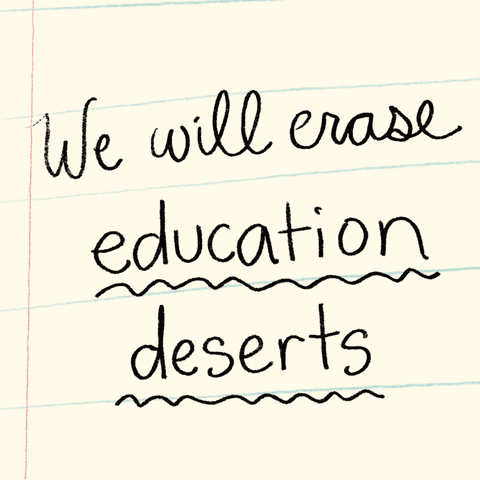 We will erase
education
deserts